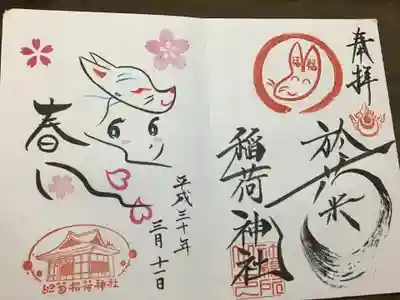 奉拝
福 福
於菊
稲荷神社
春
平成三十年
三月十一日
於菊稲荷神社